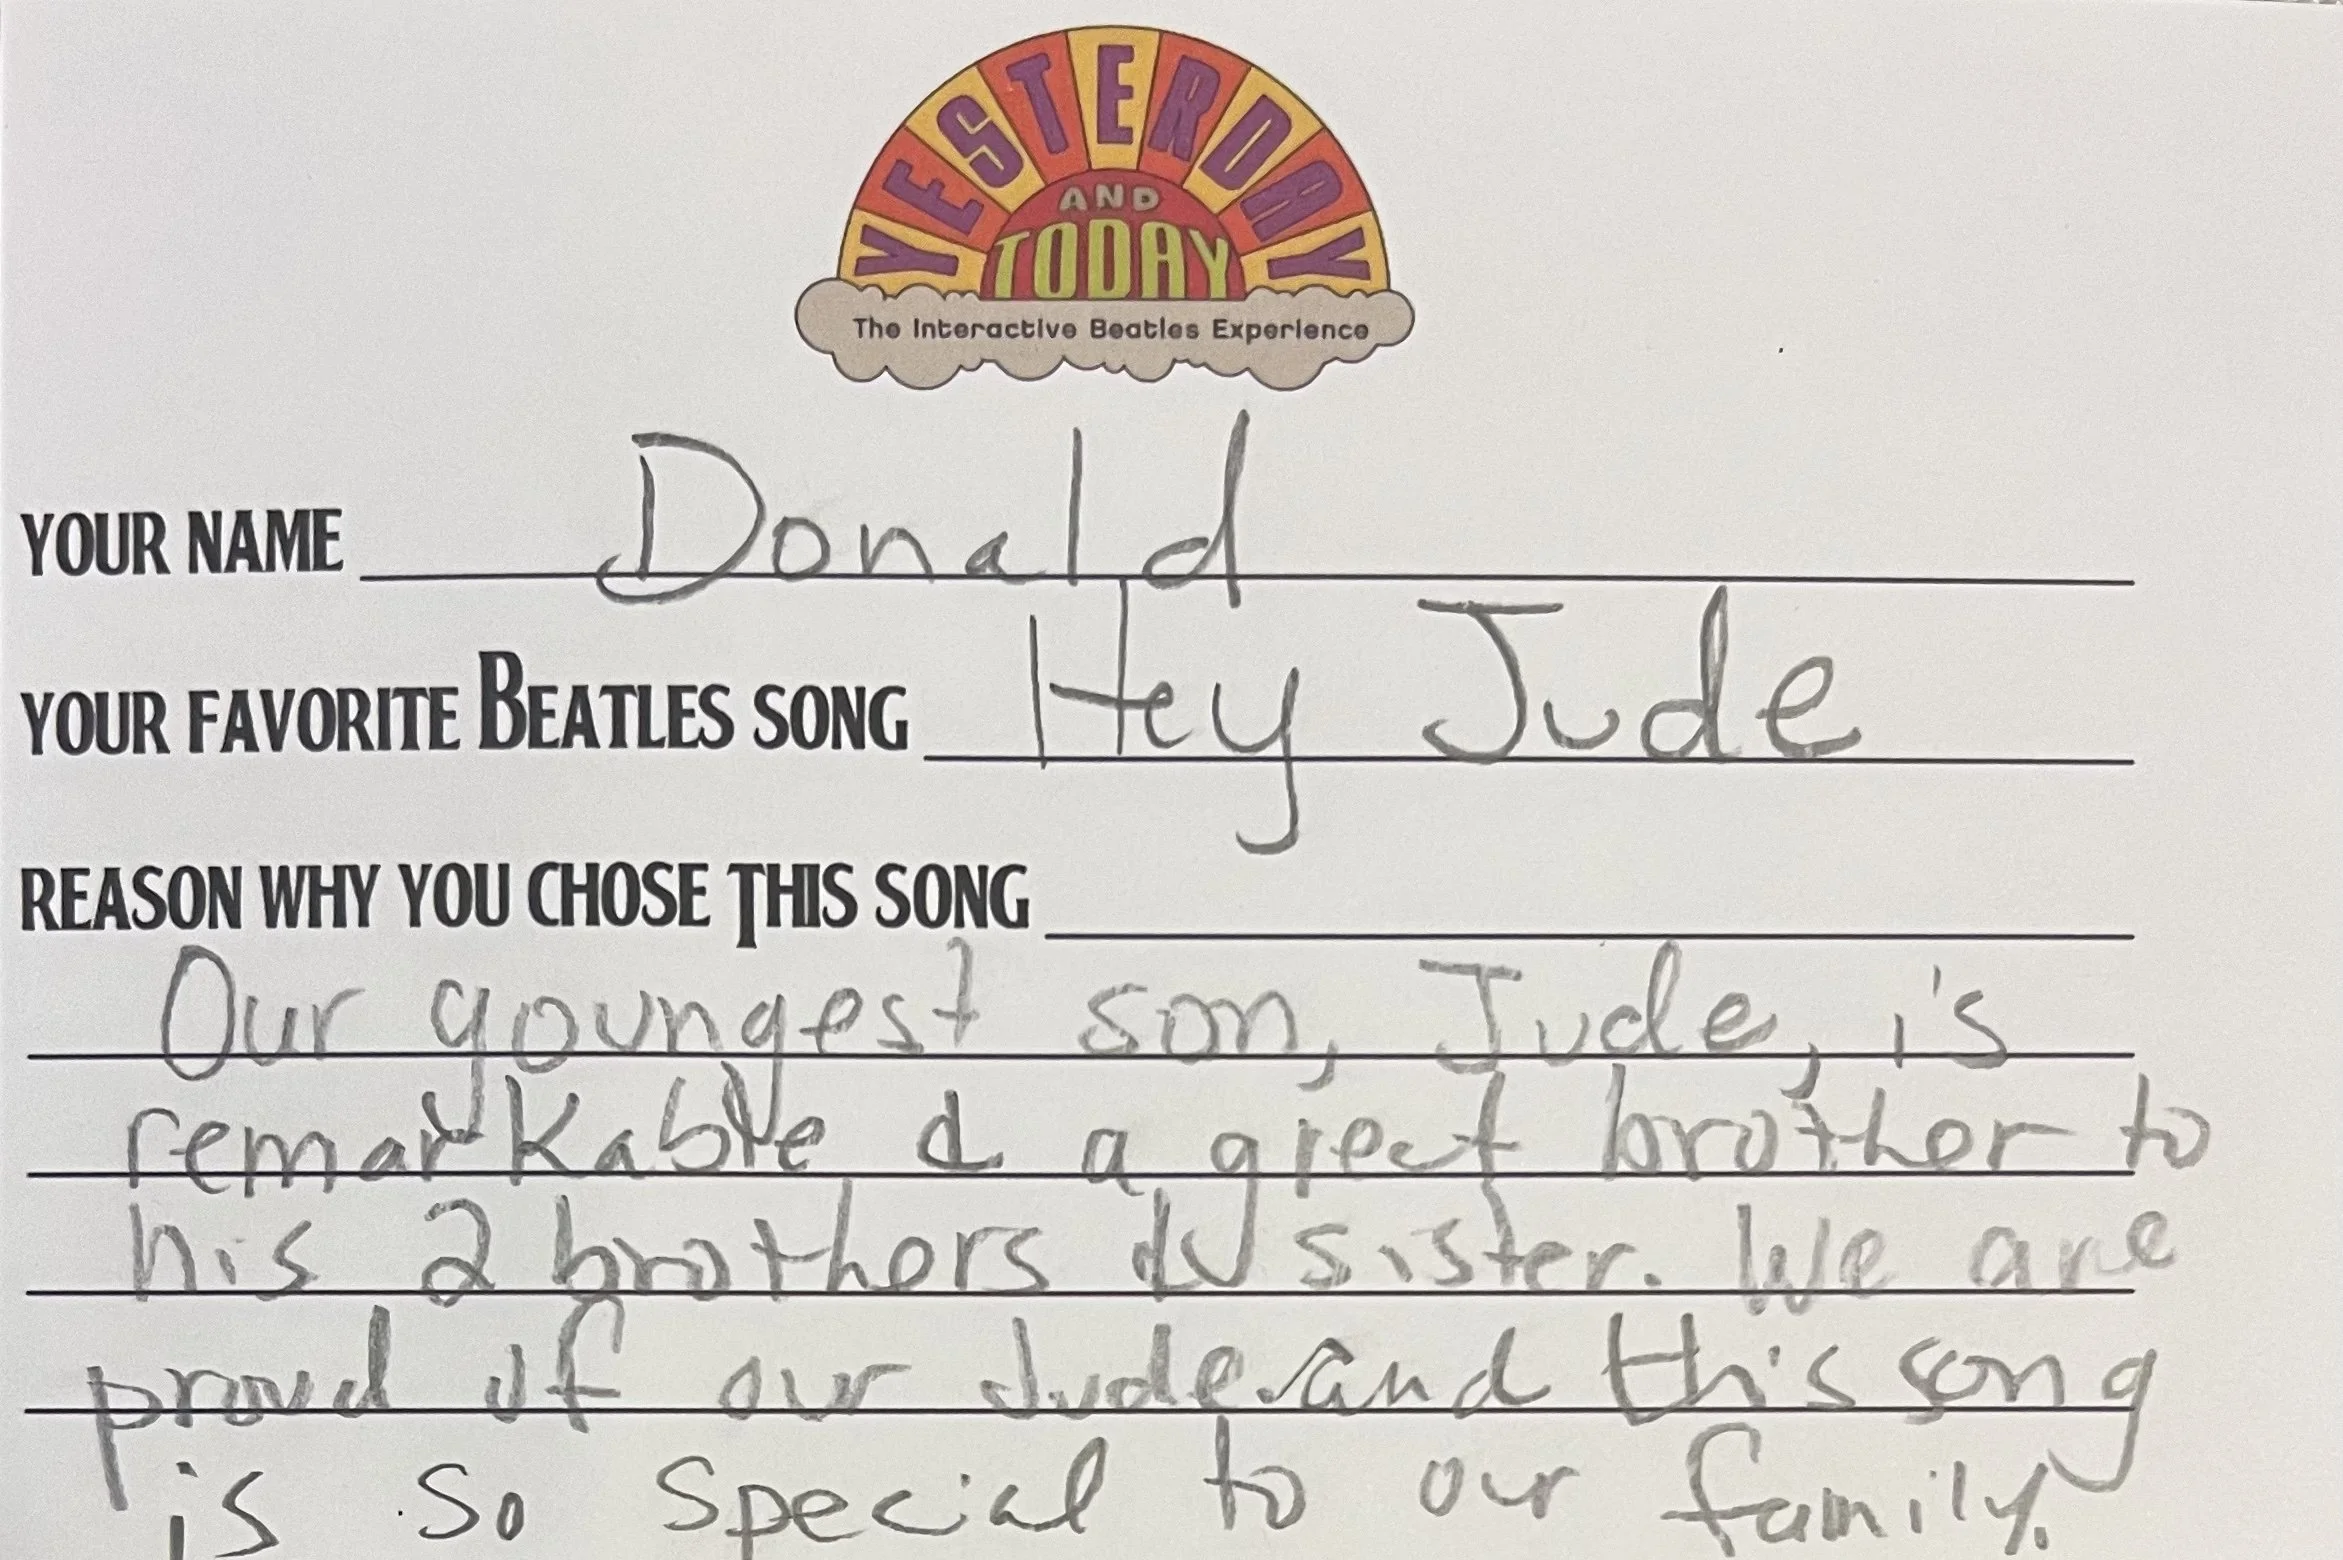 YESTERDAY
AND
TODAY
The Interactive Beatles Experience
YOUR NAME Donald
YOUR FAVORITE BEATLES SONG Hey Jude
REASON WHY YOU CHOSE THIS SONG
Our youngest son, Jude, is
remarkable & a great brother to
his 2 brothers & sister. We are
proud of our Jude and this song
is so special to our family.